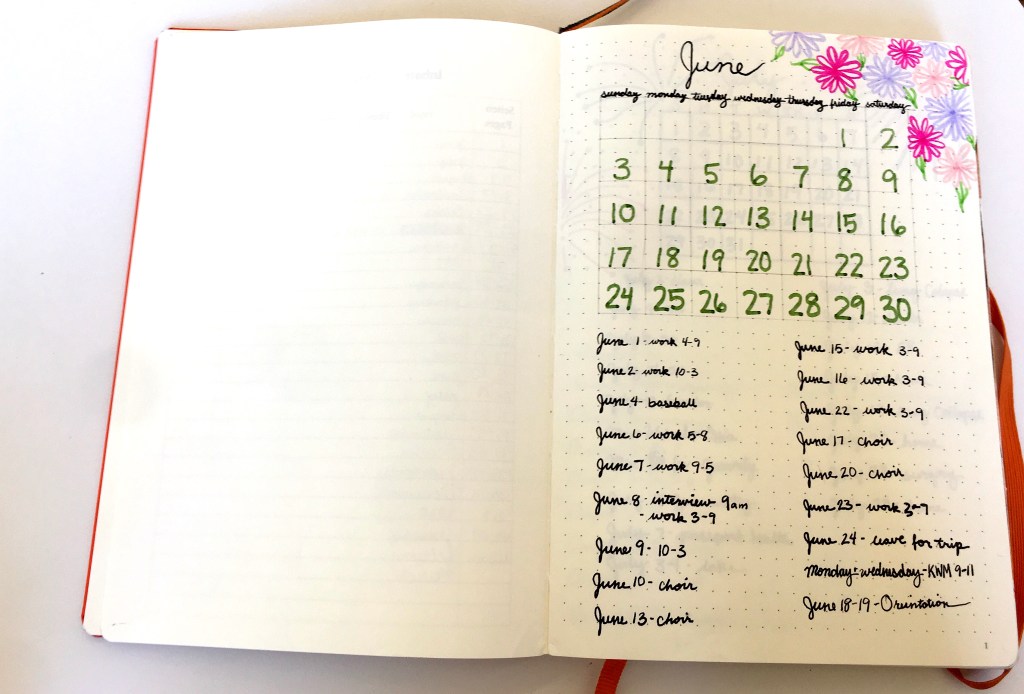 June
sunday monday tuesday wednesday thursday friday saturday
1 2
3 4 5 6 7 8 9
10 11 12 13 14 15 16
17 18 19 20 21 22 23
24 25 26 27 28 29 30
June 1 - work 4-9
June 2 - work 10-3
June 4 - baseball
June 6 - work 5-8
June 7 - work 9-5
June 8 - interview 9am
- work 3-9
June 9 - 10-3
June 10 - choir
June 13 - choir
June 15 - work 3-9
June 16 - work 3-9
June 22 - work 3-9
June 17 - choir
June 20 - choir
June 23 - work
June 24 - leave for trip
Monday & wednesday - KWM 9-11
June 18-19 - Orientation
1